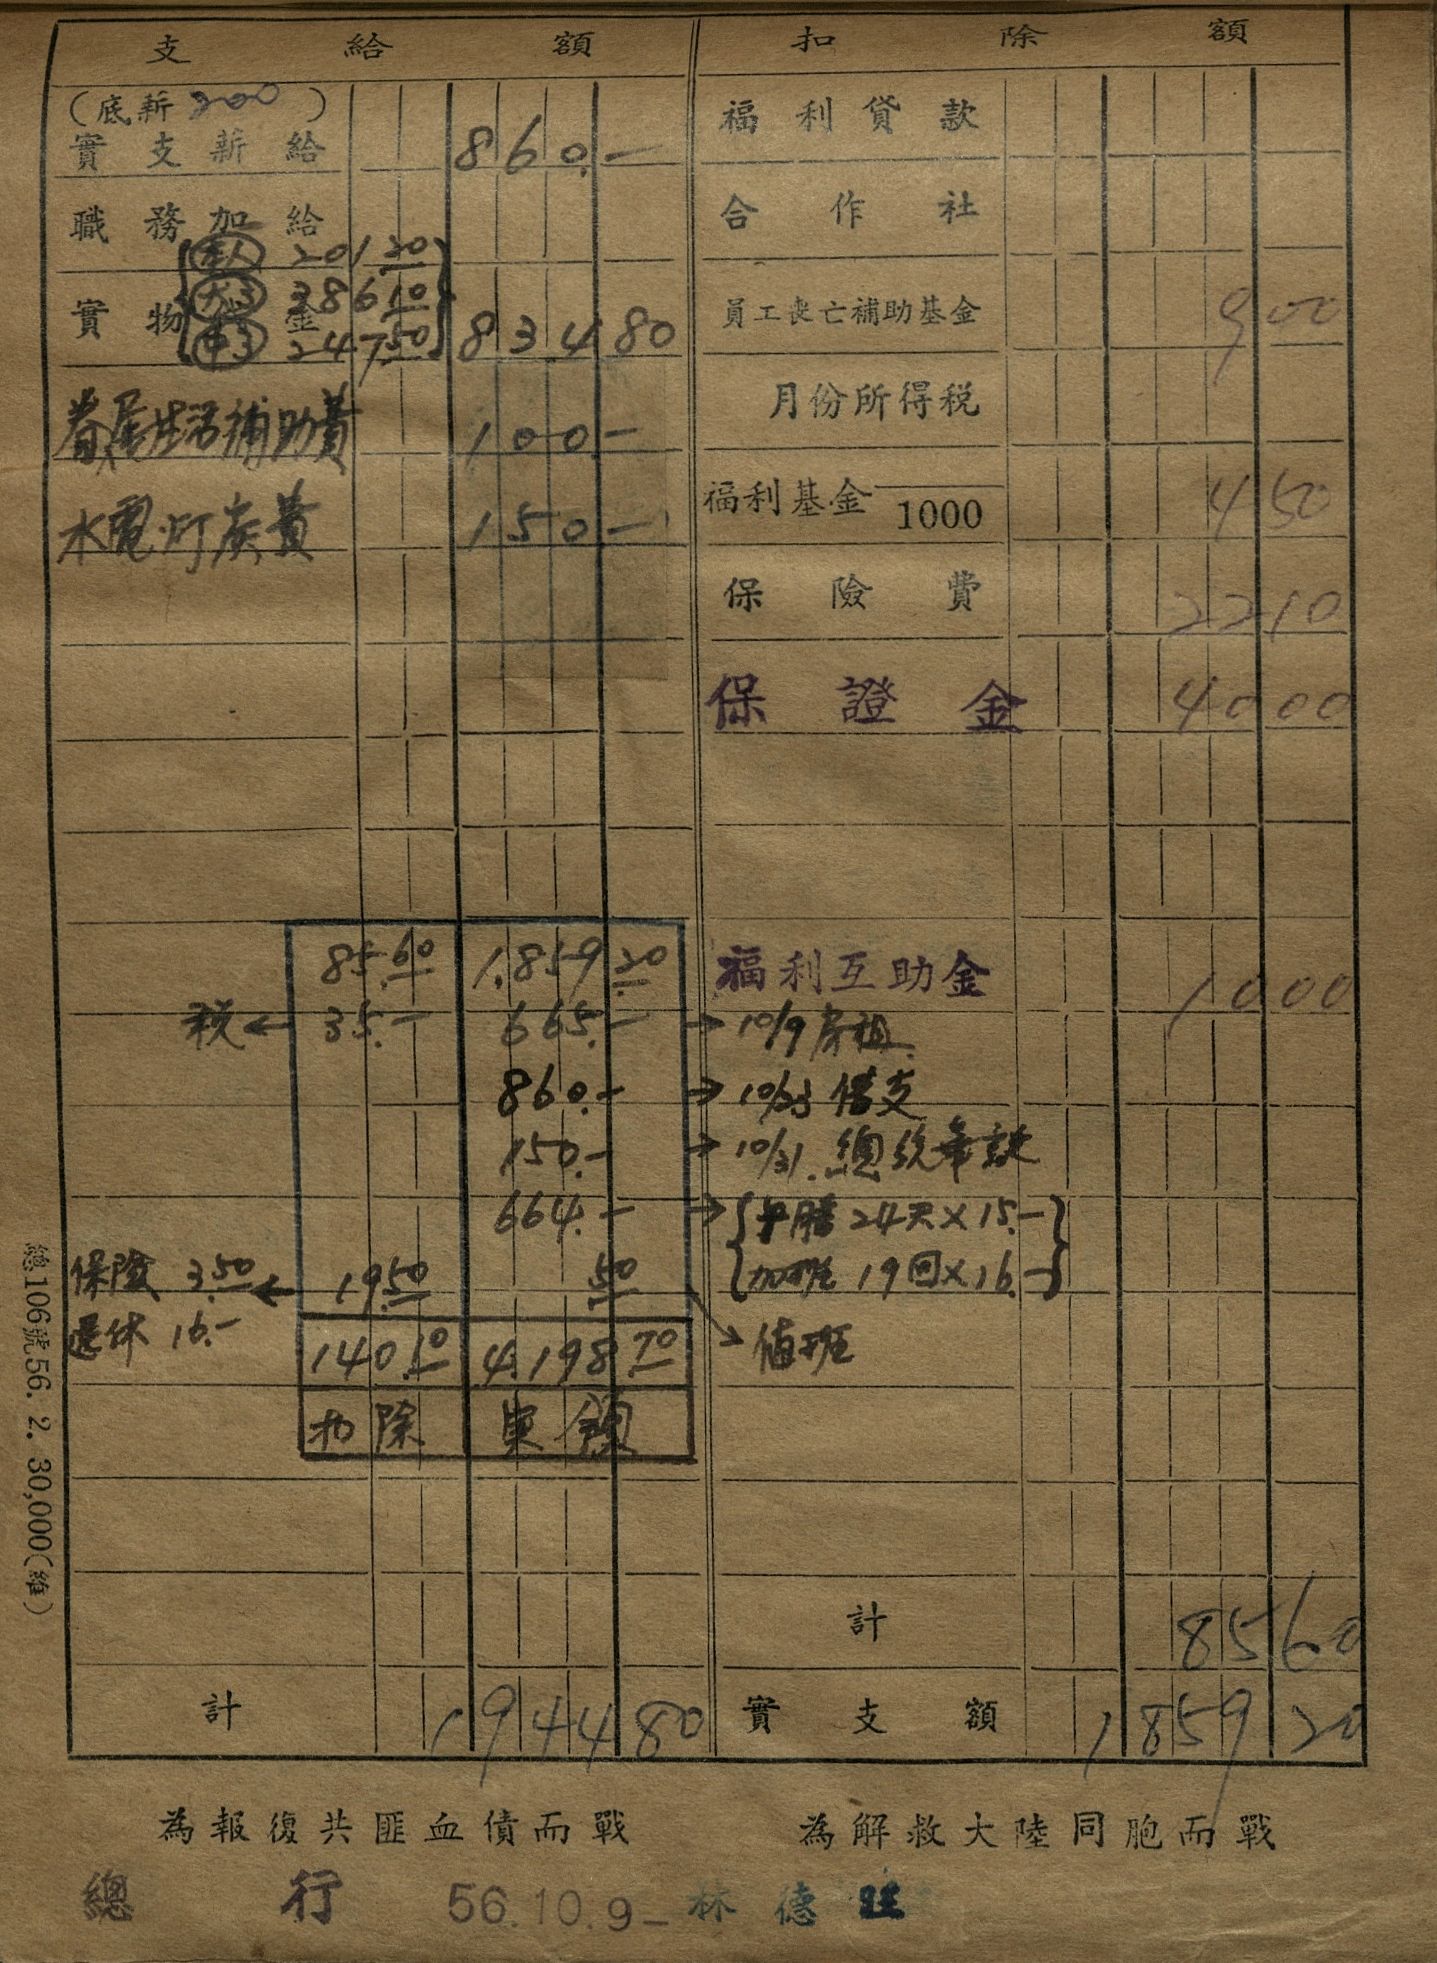 支給額
(底薪200)
實支薪給 860.—
職務加給
實物金 834 80
本人 201 20
大口 386 10
中口 247 50
眷屬生活補助費 100.—
水電灯炭費 150.—
計 1944 80
扣除額
福利貸款
合作社
員工喪亡補助基金 9 00
月份所得稅
福利基金 1000 4 50
保險費 22 10
保證金 40 00
福利互助金 10 00
計 85 60
實支額 1859 20
85.60 1.859.20
税 ← 35.— 665.— → 10/9 房租
860.— → 10/23 借支
150.— → 10/31. 總統華誕
664.— → 午膳 24天×15.—
加班 19回×16.—
保險 3.50 ← 19.50 50 → 值班
退休 16.—
140.10 4.198.70
扣除 實領
總106號56.2.30,000(維)
為報復共匪血債而戰 為解救大陸同胞而戰
總行 56.10.9— 林德旺